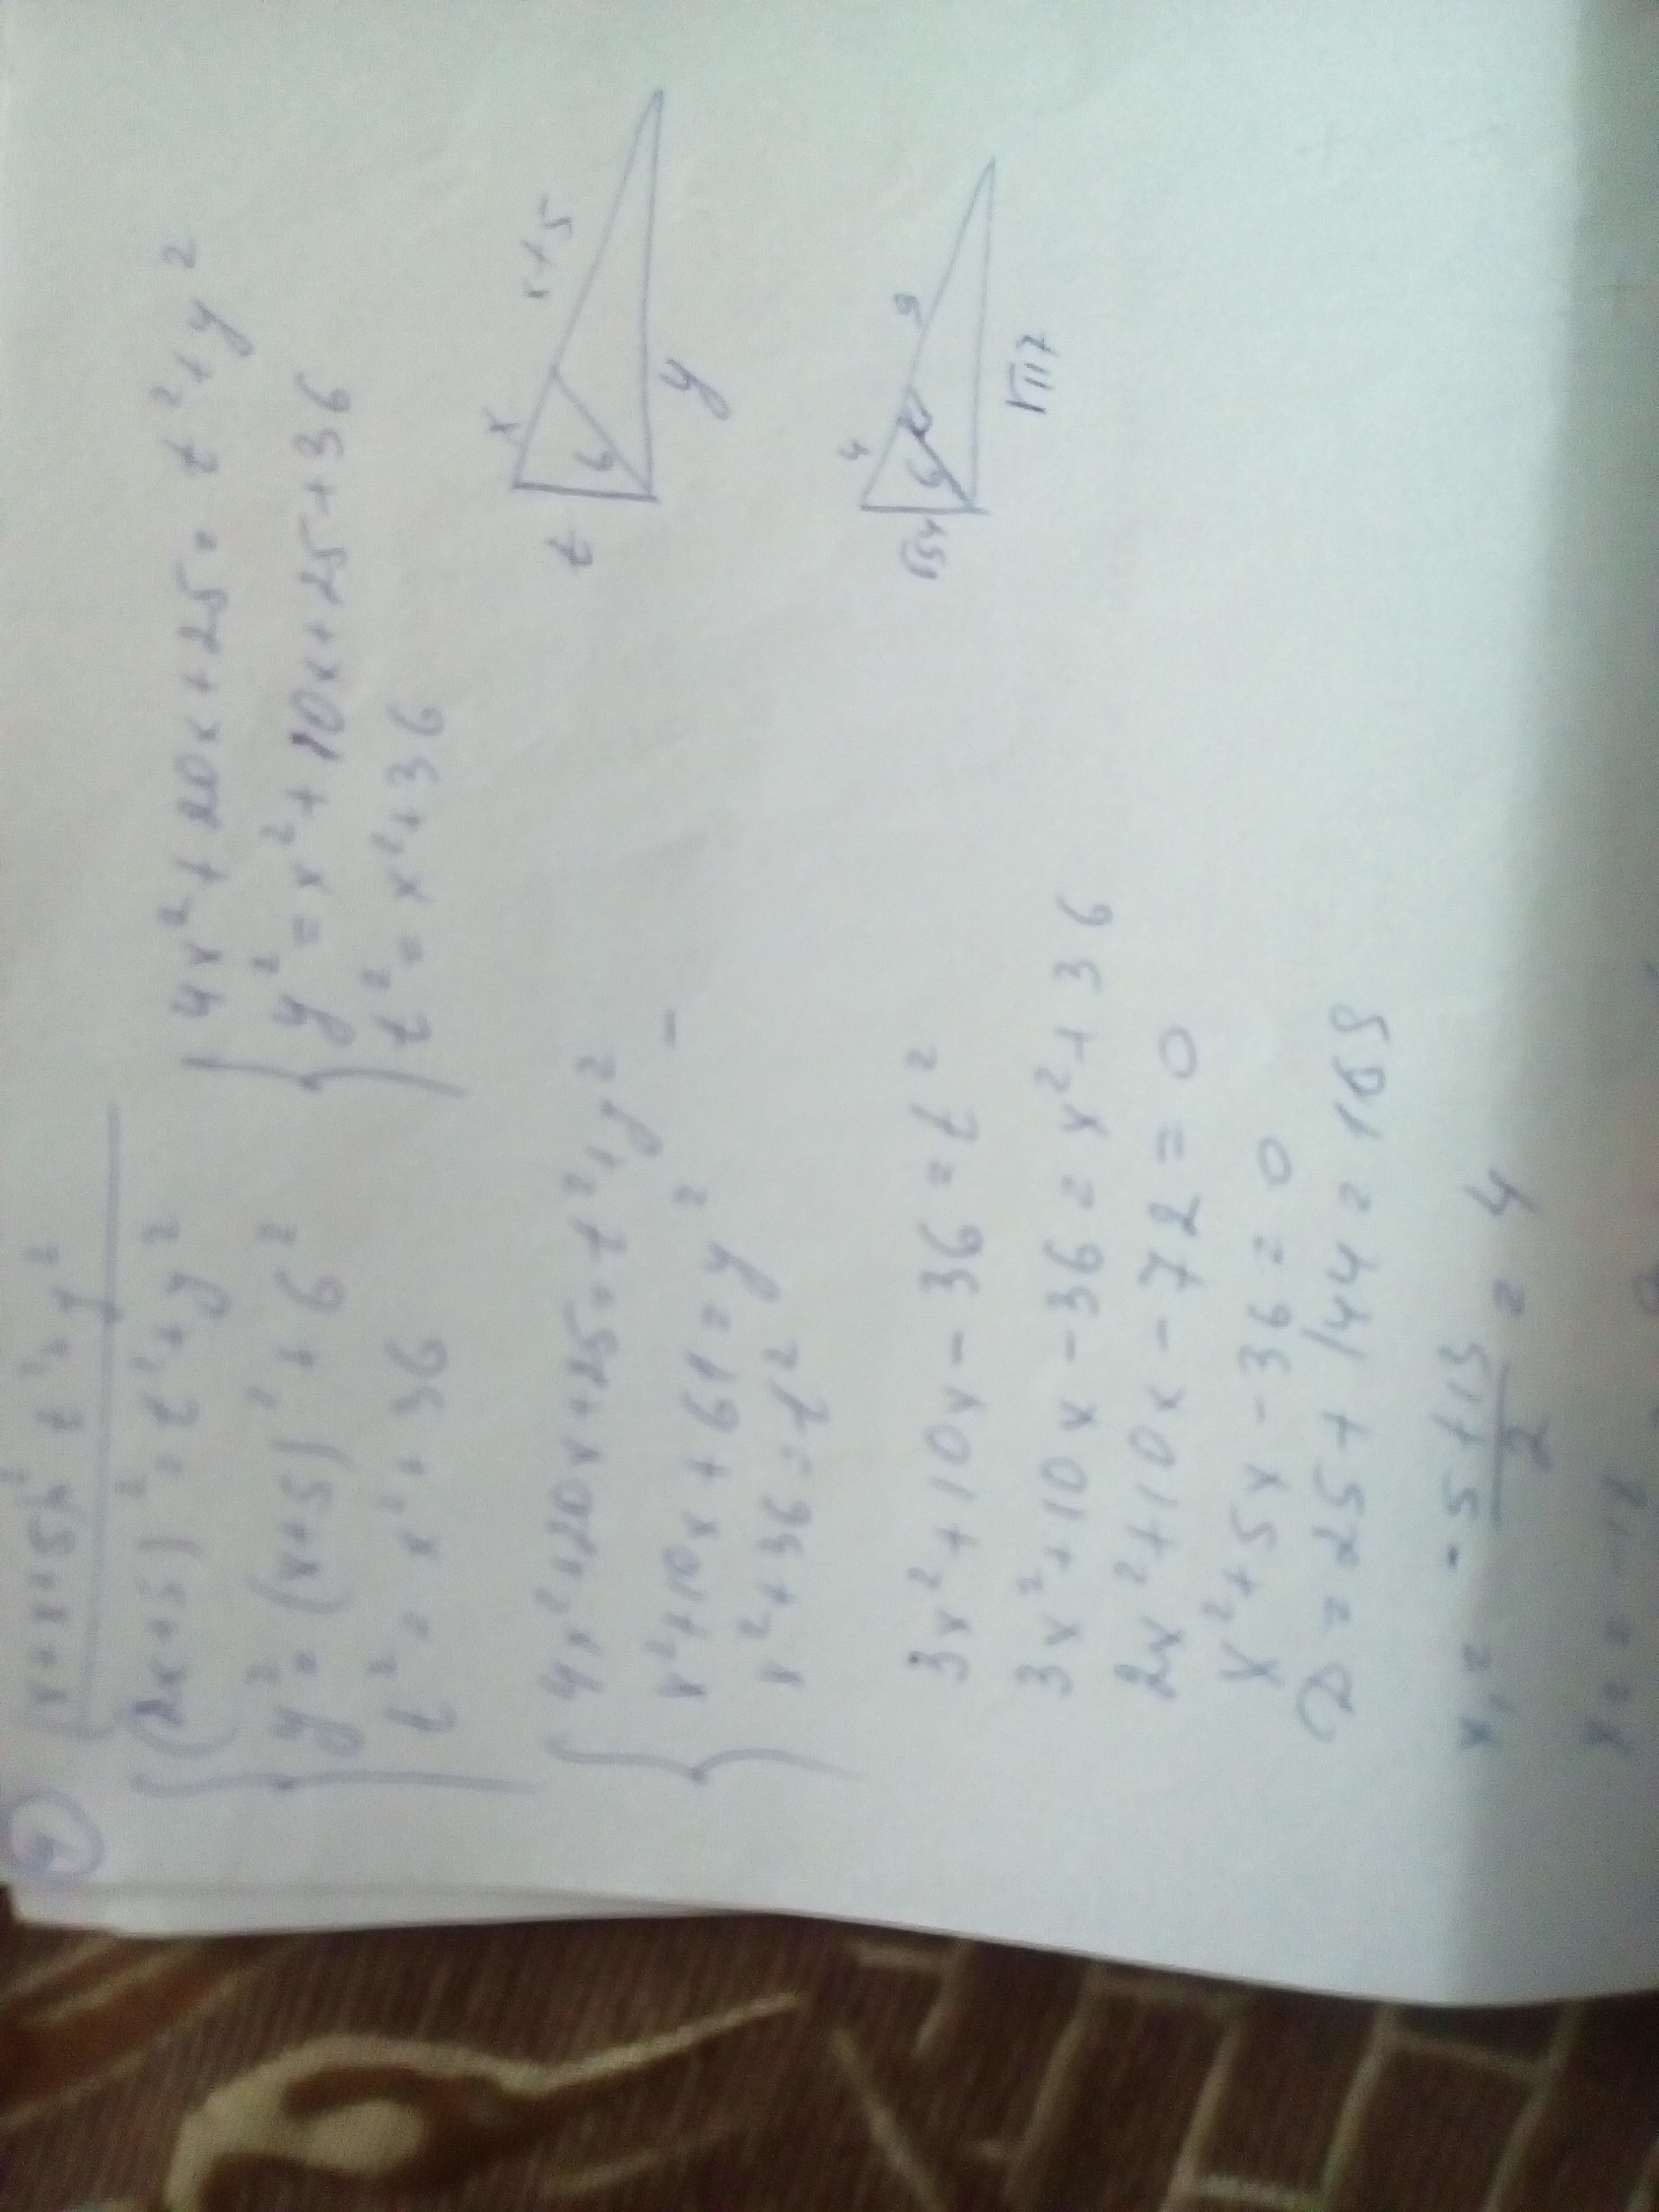 ④
x+x+5)² t²+y²
(2x+5)² = t²+y²
y² = (x+5)² + 6²
t² = x² + 36
4x²+20x+25 = t²+y²
y² = x²+10x+25+36
t² = x²+36
4x²+20x+25 = t²+y² -
x²+10x+61 = y²
x²+36 = t²
3x²+10x-36 = t²
3x²+10x-36 = x²+36
2x²+10x-72 = 0
x²+5x-36 = 0
D = 25+144 = 169
x₁ = -5+13/2 = 4
x
x+5
t
6
y
4
9
√54
6
√117